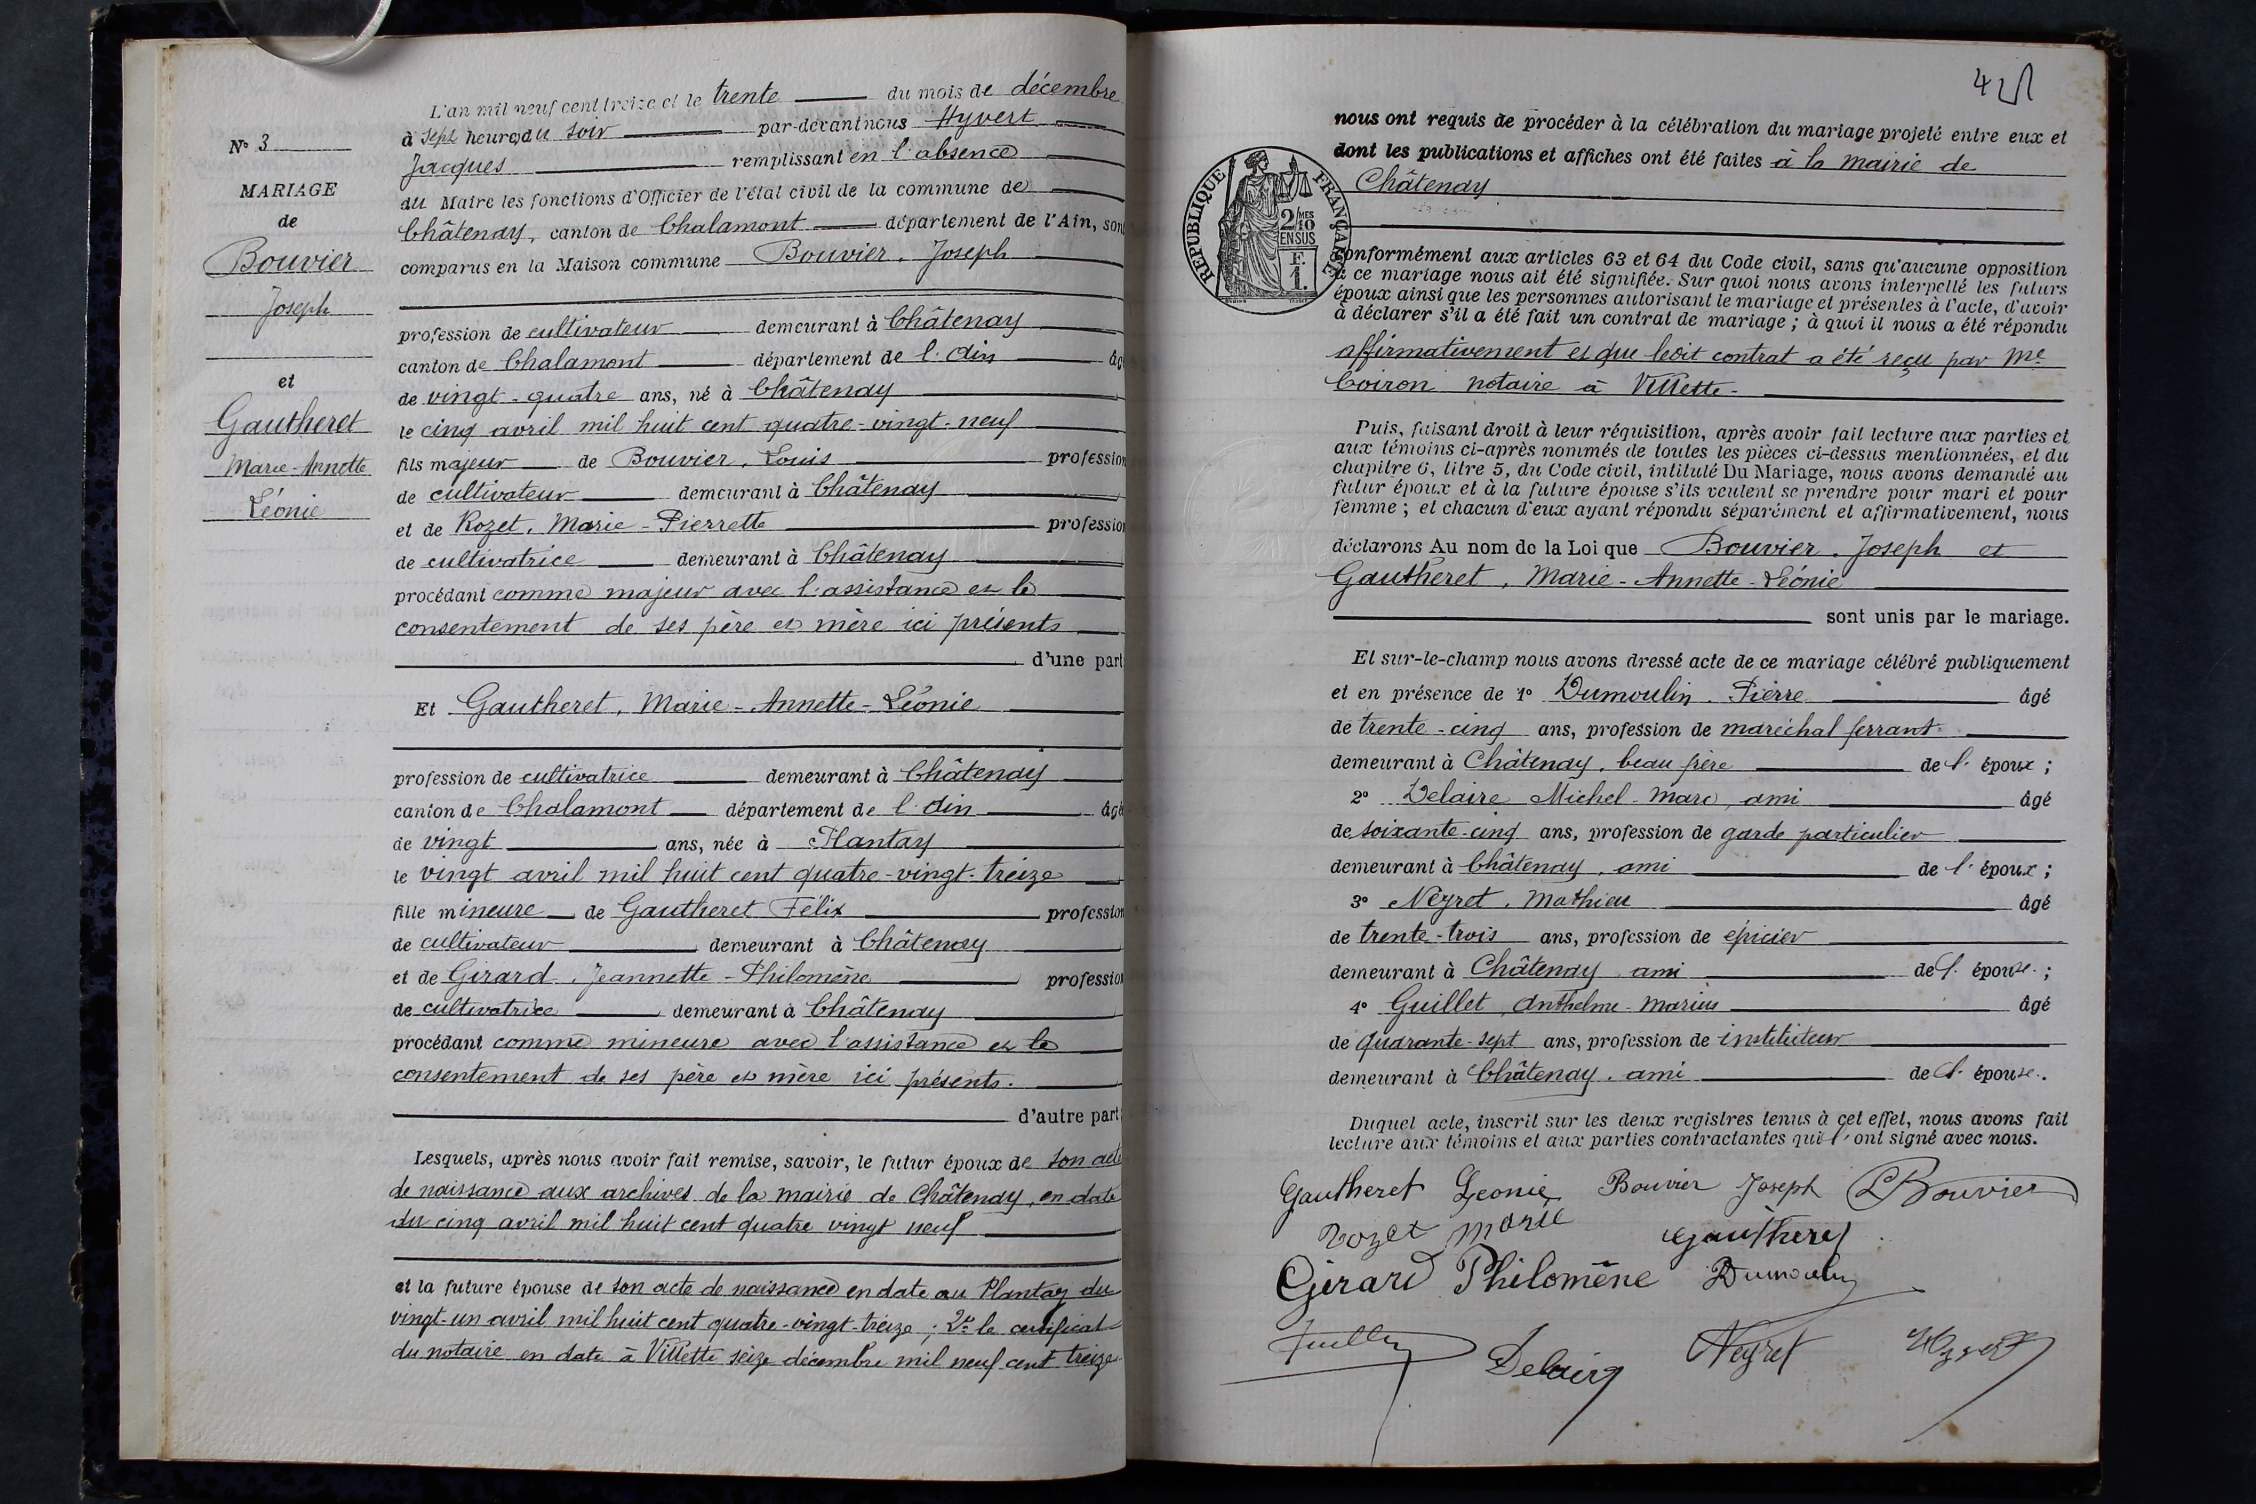 L'an mil neuf cent treize et le trente du mois de décembre
à sept heures du soir par-devant nous Hyvert
Jacques remplissant en l'absence
du Maire les fonctions d'Officier de l'état civil de la commune de
Châtenay, canton de Chalamont département de l'Ain, son
comparus en la Maison commune Bouvier, Joseph
profession de cultivateur demeurant à Châtenay
canton de Chalamont département de l'Ain âg
de vingt-quatre ans, né à Châtenay
le cinq avril mil huit cent quatre-vingt-neuf
fils majeur de Bouvier, Louis profession
de cultivateur demeurant à Châtenay
et de Rozet, Marie-Pierrette profession
de cultivatrice demeurant à Châtenay
procédant comme majeur avec l'assistance et le
consentement de ses père et mère ici présents
d'une part
Et Gautheret, Marie-Annette-Léonie
profession de cultivatrice demeurant à Châtenay
canton de Chalamont département de l'Ain âgé
de vingt ans, née à Plantay
le vingt avril mil huit cent quatre-vingt-treize
fille mineure de Gautheret Félix profession
de cultivateur demeurant à Châtenay
et de Girard, Jeannette-Philomène profession
de cultivatrice demeurant à Châtenay
procédant comme mineure avec l'assistance et le
consentement de ses père et mère ici présents.
d'autre part
Lesquels, après nous avoir fait remise, savoir, le futur époux de son acte
de naissance aux archives de la mairie de Châtenay, en date
du cinq avril mil huit cent quatre vingt neuf
et la future épouse de son acte de naissance en date au Plantay du
vingt-un avril mil huit cent quatre-vingt-treize ; 2° le certificat
du notaire en date à Villette seize décembre mil neuf cent treize
N° 3
MARIAGE
de
Bouvier
Joseph
et
Gautheret
Marie-Annette
Léonie
nous ont requis de procéder à la célébration du mariage projeté entre eux et
dont les publications et affiches ont été faites à la mairie de
Châtenay
RÉPUBLIQUE FRANÇAISE
2/10MES
EN SUS
F.
1.
conformément aux articles 63 et 64 du Code civil, sans qu'aucune opposition
à ce mariage nous ait été signifiée. Sur quoi nous avons interpellé les futurs
époux ainsi que les personnes autorisant le mariage et présentes à l'acte, d'avoir
à déclarer s'il a été fait un contrat de mariage ; à quoi il nous a été répondu
affirmativement et que ledit contrat a été reçu par Me
Coiron notaire à Villette.
Puis, faisant droit à leur réquisition, après avoir fait lecture aux parties et
aux témoins ci-après nommés de toutes les pièces ci-dessus mentionnées, et du
chapitre 6, titre 5, du Code civil, intitulé Du Mariage, nous avons demandé au
futur époux et à la future épouse s'ils veulent se prendre pour mari et pour
femme ; et chacun d'eux ayant répondu séparément et affirmativement, nous
déclarons Au nom de la Loi que Bouvier, Joseph et
Gautheret, Marie-Annette-Léonie
sont unis par le mariage.
Et sur-le-champ nous avons dressé acte de ce mariage célébré publiquement
et en présence de 1° Dumoulin, Pierre âgé
de trente-cinq ans, profession de maréchal ferrant
demeurant à Châtenay, beau frère de l'époux ;
2° Delaire Michel-Marc, ami âgé
de soixante-cinq ans, profession de garde particulier
demeurant à Châtenay, ami de l'époux ;
3° Neyret, Mathieu âgé
de trente-trois ans, profession de épicier
demeurant à Châtenay ami de l'épouse ;
4° Guillet, Anthelme-Marius âgé
de quarante-sept ans, profession de instituteur
demeurant à Châtenay, ami de l'épouse.
Duquel acte, inscrit sur les deux registres tenus à cet effet, nous avons fait
lecture aux témoins et aux parties contractantes qui l'ont signé avec nous.
Gautheret Leonie Bouvier Joseph LBouvier
Rozet Marie Gautheret
Girard Philomène Dumoulin
Guillet Delaire Neyret Hyvert